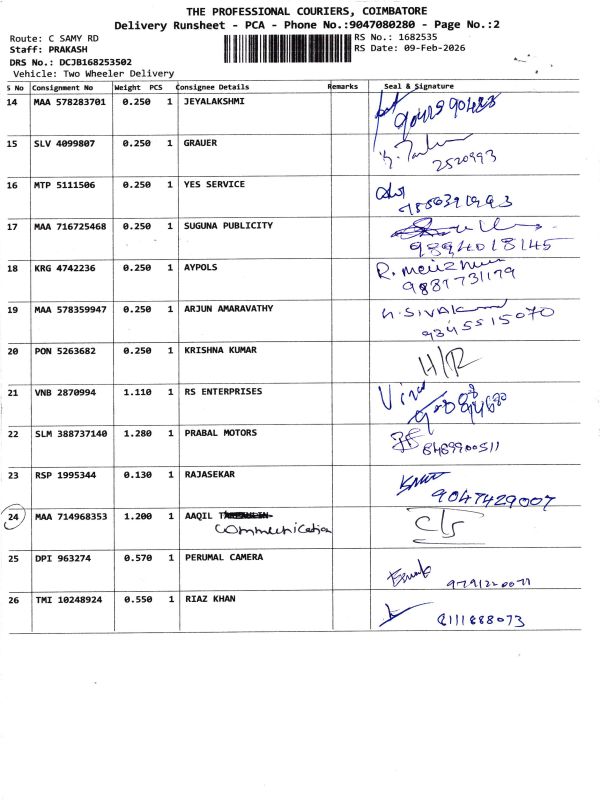 THE PROFESSIONAL COURIERS, COIMBATORE
Delivery Runsheet - PCA - Phone No.:9047080280 - Page No.:2
Route: C SAMY RD RS No.: 1682535
Staff: PRAKASH RS Date: 09-Feb-2026
DRS No.: DCJB168253502
Vehicle: Two Wheeler Delivery
S No Consignment No Weight PCS Consignee Details Remarks Seal & Signature
14 MAA 578283701 0.250 1 JEYALAKSHMI
15 SLV 4099807 0.250 1 GRAUER
2520993
16 MTP 5111506 0.250 1 YES SERVICE
17 MAA 716725468 0.250 1 SUGUNA PUBLICITY
9894018145
18 KRG 4742236 0.250 1 AYPOLS R.
19 MAA 578359947 0.250 1 ARJUN AMARAVATHY
9345515070
20 PON 5263682 0.250 1 KRISHNA KUMAR H/R
21 VNB 2870994 1.110 1 RS ENTERPRISES
22 SLM 388737140 1.280 1 PRABAL MOTORS
8489900511
23 RSP 1995344 0.130 1 RAJASEKAR
9047429007
24 MAA 714968353 1.200 1 AAQIL
communication
25 DPI 963274 0.570 1 PERUMAL CAMERA
26 TMI 10248924 0.550 1 RIAZ KHAN
8111888073